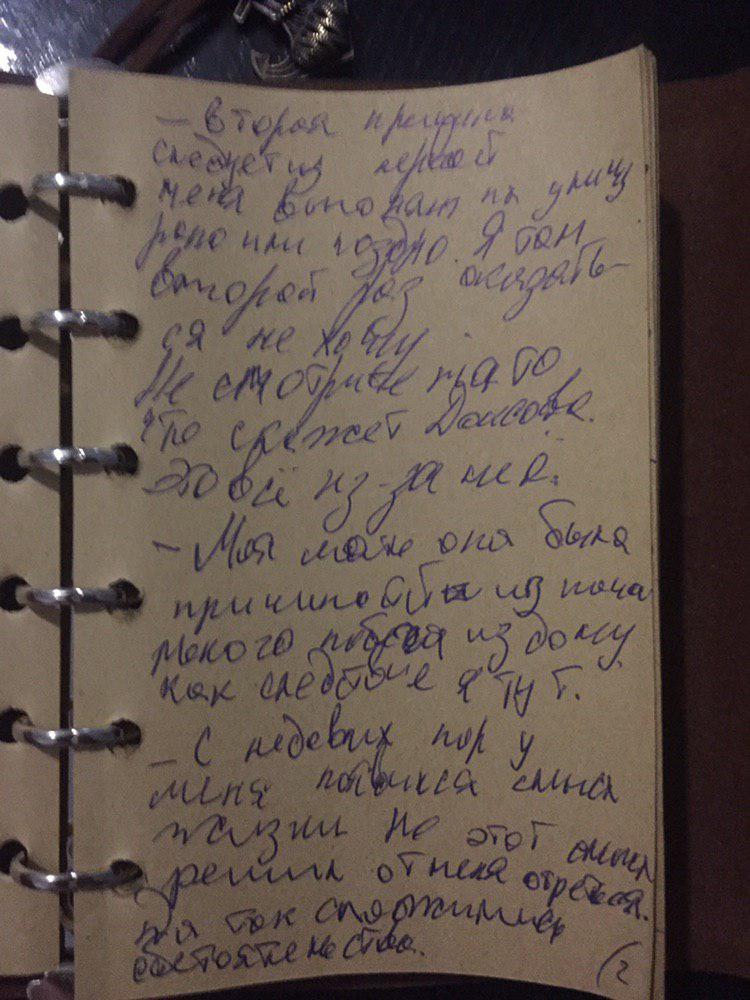 – Вторая причина
следует из первой
меня выгонят на улицу
рано или поздно. Я там
второй раз оказать-
ся не хочу.
Не смотрите на то
что скажет
это всё из-за неё.
– Моя мать она была
причиной
моего побега из дому
как следствие я тут.
– С недавних пор у
меня появился смысл
жизни но этот смысл
решил от меня отречься.
так сложились
обстоятельства.
(2